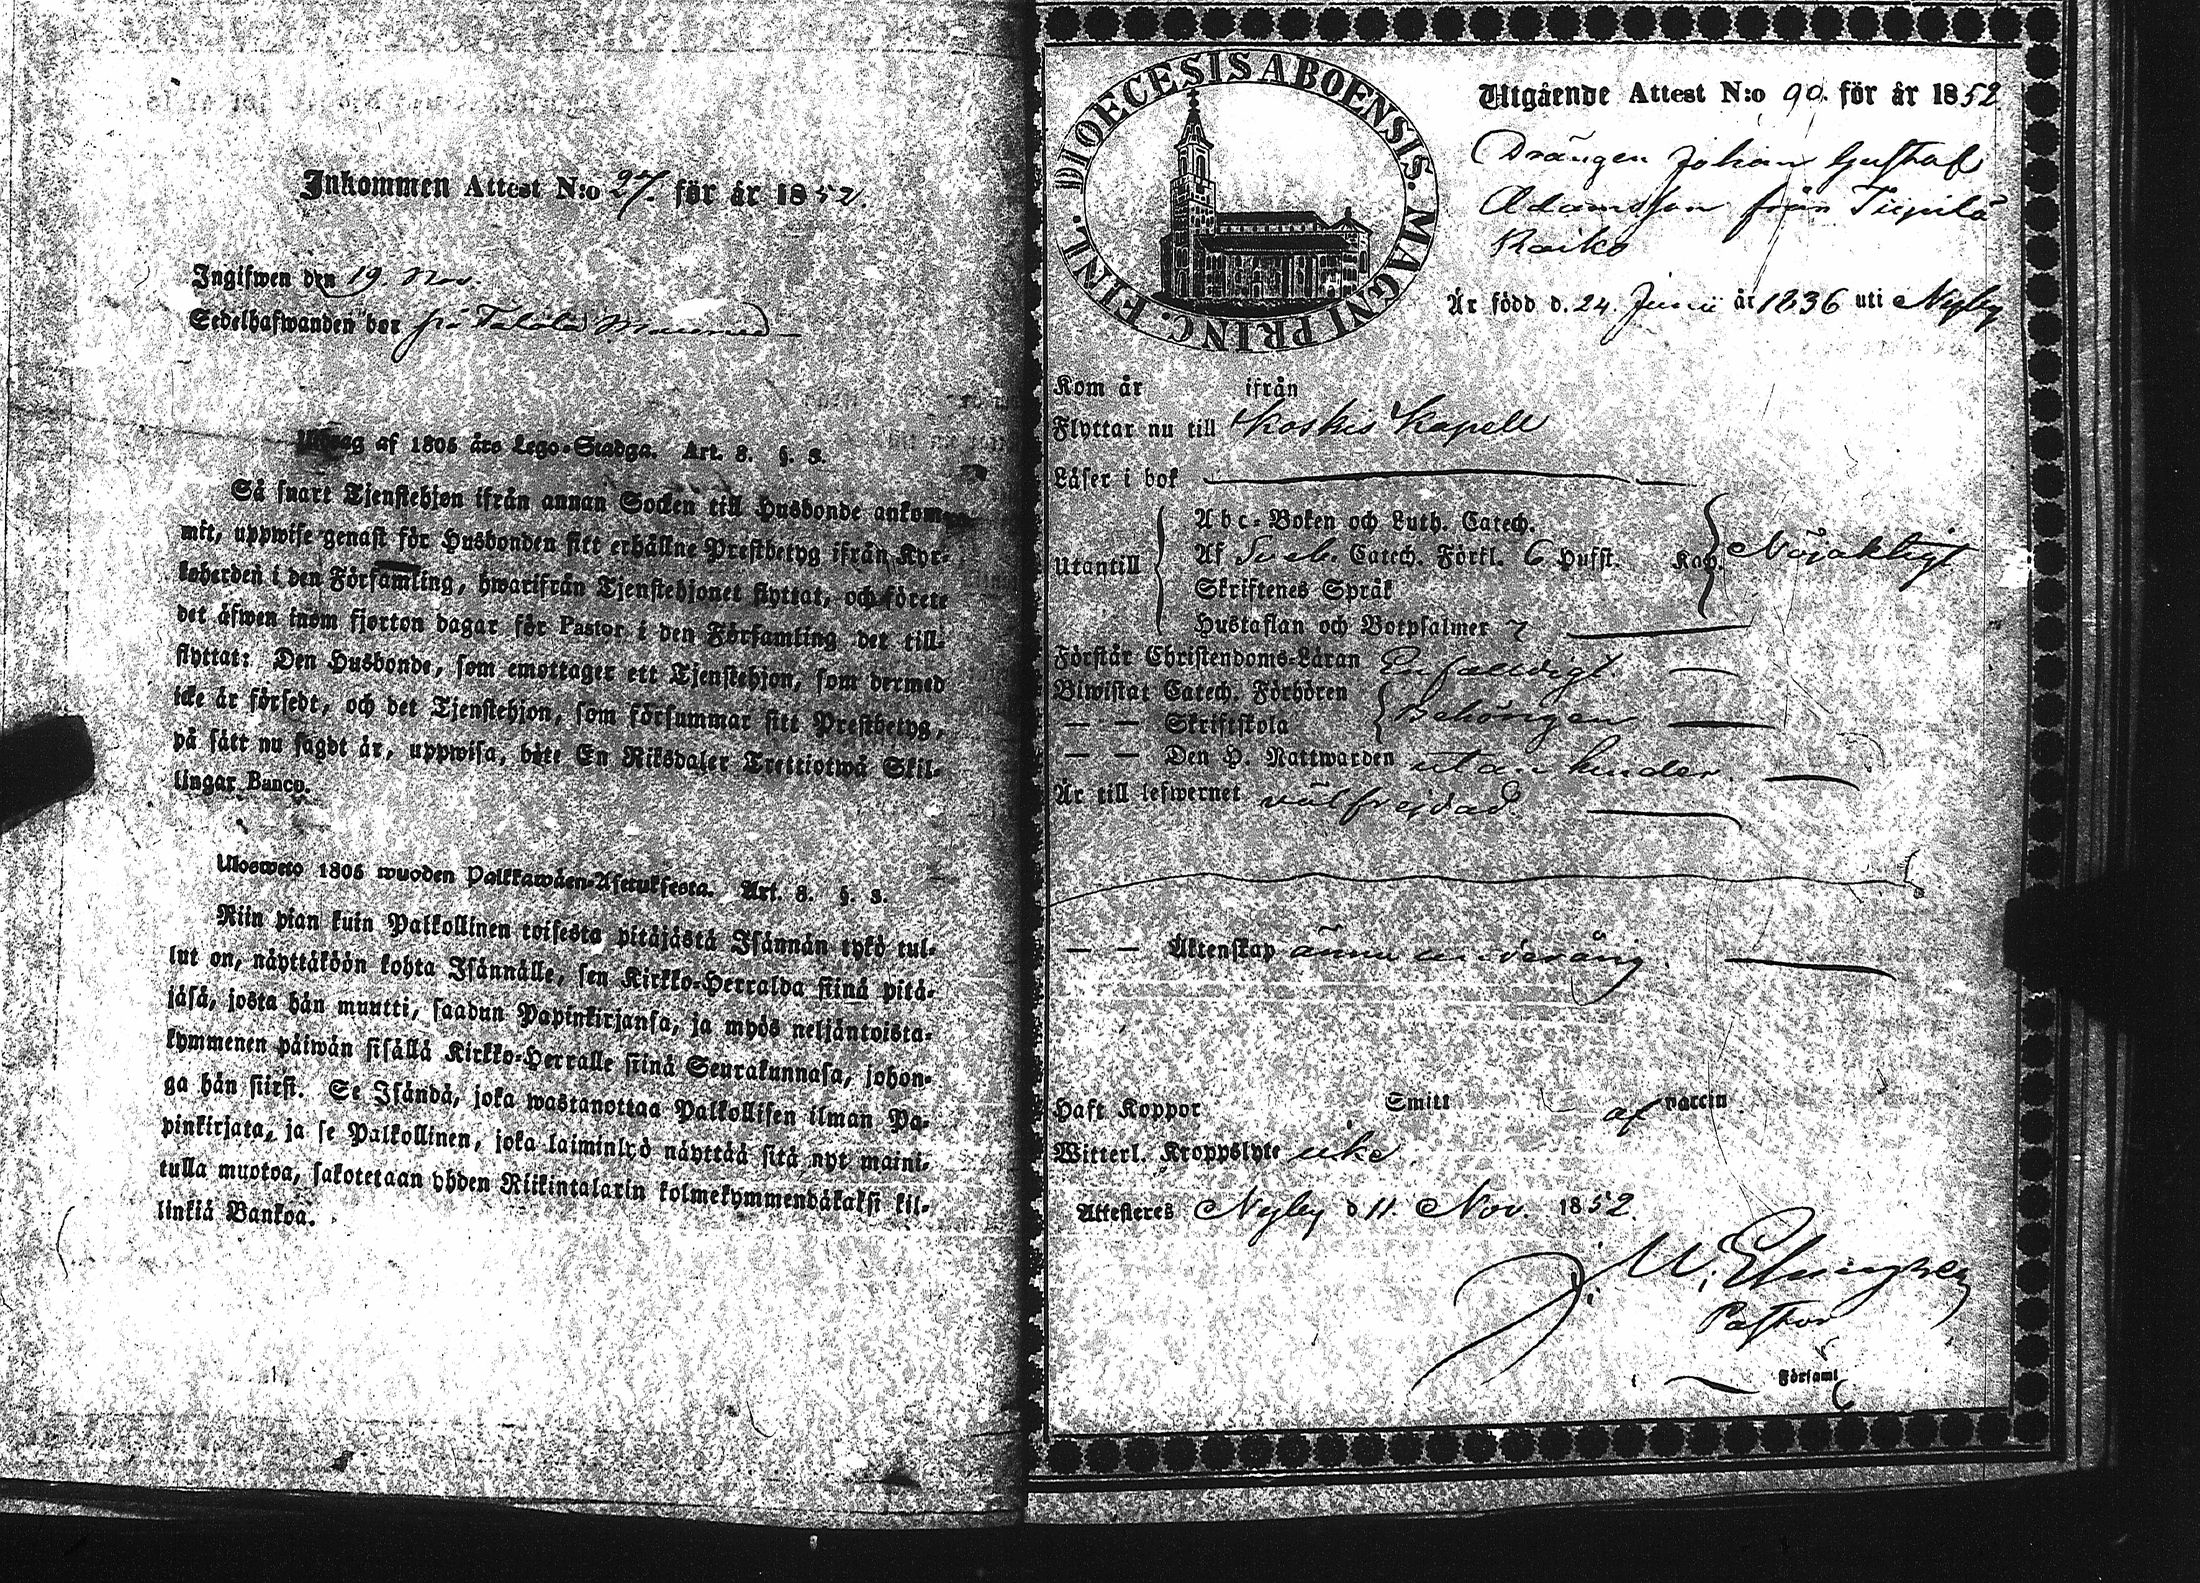 Inkommen Attest N:o 27. för år 1852.
Ingifwen den 19. Nov.
Sedelhafwanden bor på Talola
Utdrag af 1805 års Lego-Stadga. Art. 8. §. 3.
Så snart Tjenstehjon ifrån annan Socken till Husbonde ankom-
mit, uppwise genast för Husbonden sitt erhållne Prestbetyg ifrån Kyr-
koherden i den Församling, hwarifrån Tjenstehjonet flyttat, och förete
det äfwen inom fjorton dagar för Pastor i den Församling det till-
flyttat: Den Husbonde, som emottager ett Tjenstehjon, som dermed
icke är försedt, och det Tjenstehjon, som försummar sitt Prestbetyg,
på sätt nu sagdt är, uppwisa, böte En Riksdaler Trettiotwå Skil-
lingar Banco.
Ulosweto 1805 wuoden Palkkawäen-Asetuksesta. Art. 8. §. 3.
Niin pian kuin Palkollinen toisesta pitäjästä Isännän tykö tul-
lut on, näyttäköön kohta Isännälle, sen Kirkko-Herralda siinä pitä-
jäsä, josta hän muutti, saadun Papinkirjansa, ja myös neljäntoista-
kymmenen päiwän sisällä Kirkko-Herralle siinä Seurakunnasa, johon-
ga hän siirsi. Se Isändä, joka wastanottaa Palkollisen ilman Pa-
pinkirjata, ja se Palkollinen, joka laiminlyö näyttää sitä nyt maini-
tulla muotoa, sakotetaan yhden Riikintalarin kolmekymmendäkaksi kil-
linkiä Bankoa.
DIOECESIS ABOENSIS. MAGNI PRINC. FINL.
Utgående Attest N:o 90. för år 1852
Drängen Johan Gustaf
Adamsson från Tiipilä
Raiko
Är född d. 24. Junii år 1836 uti Nyby
Kom år ifrån
Flyttar nu till Koskis Kapell
Läser i bok
Utantill
Abc-Boken och Luth. Catech.
Af Sveb. Catech. Förkl. 6 Hufst. Kap. Nöjaktigt
Skriftenes Språk
Hustaflan och Botpsalmer 7
Förstår Christendoms-Läran Enfaldigt
Biwistat Catech. Förhören
— — Skriftskola Behörigen
— — Den H. Nattwarden utan hinder.
Är till lefwernet väl frejdad.
— — Äktenskap ännu oveväng
Haft Koppor Smitt af vaccin
Witterl. Kroppslyte icke.
Attesteres Nyby d 11. Nov. 1852.
Pastor
i Församl